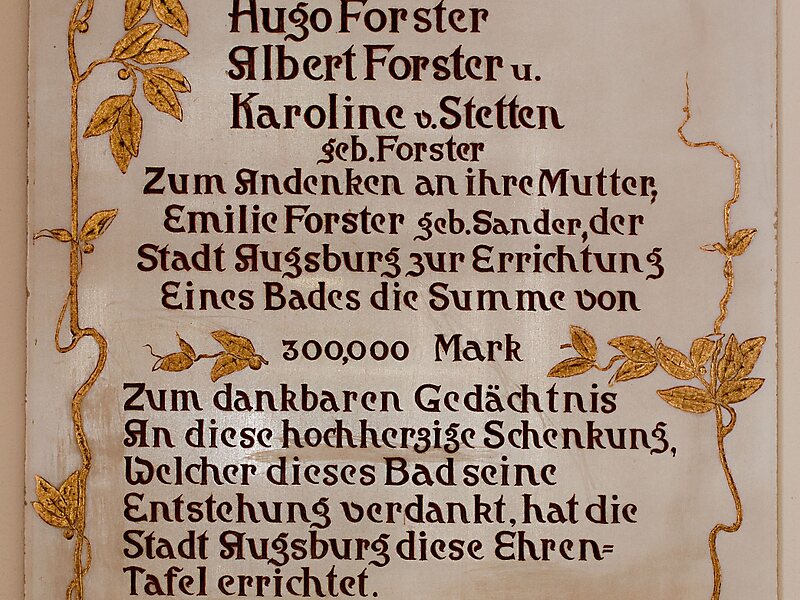 Hugo Forster
Albert Forster u.
Karoline v. Stetten
geb. Forster
Zum Andenken an ihre Mutter,
Emilie Forster geb. Sander, der
Stadt Augsburg zur Errichtung
Eines Bades die Summe von
300,000 Mark
Zum dankbaren Gedächtnis
An diese hochherzige Schenkung,
Welcher dieses Bad seine
Entstehung verdankt, hat die
Stadt Augsburg diese Ehren=
Tafel errichtet.